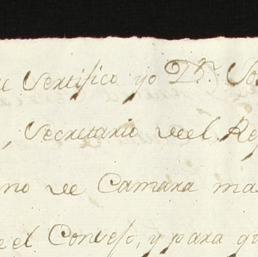 Certifico yo Dn.
, Secretario del Rey
no de Camara mas
el Consejo, y para qe